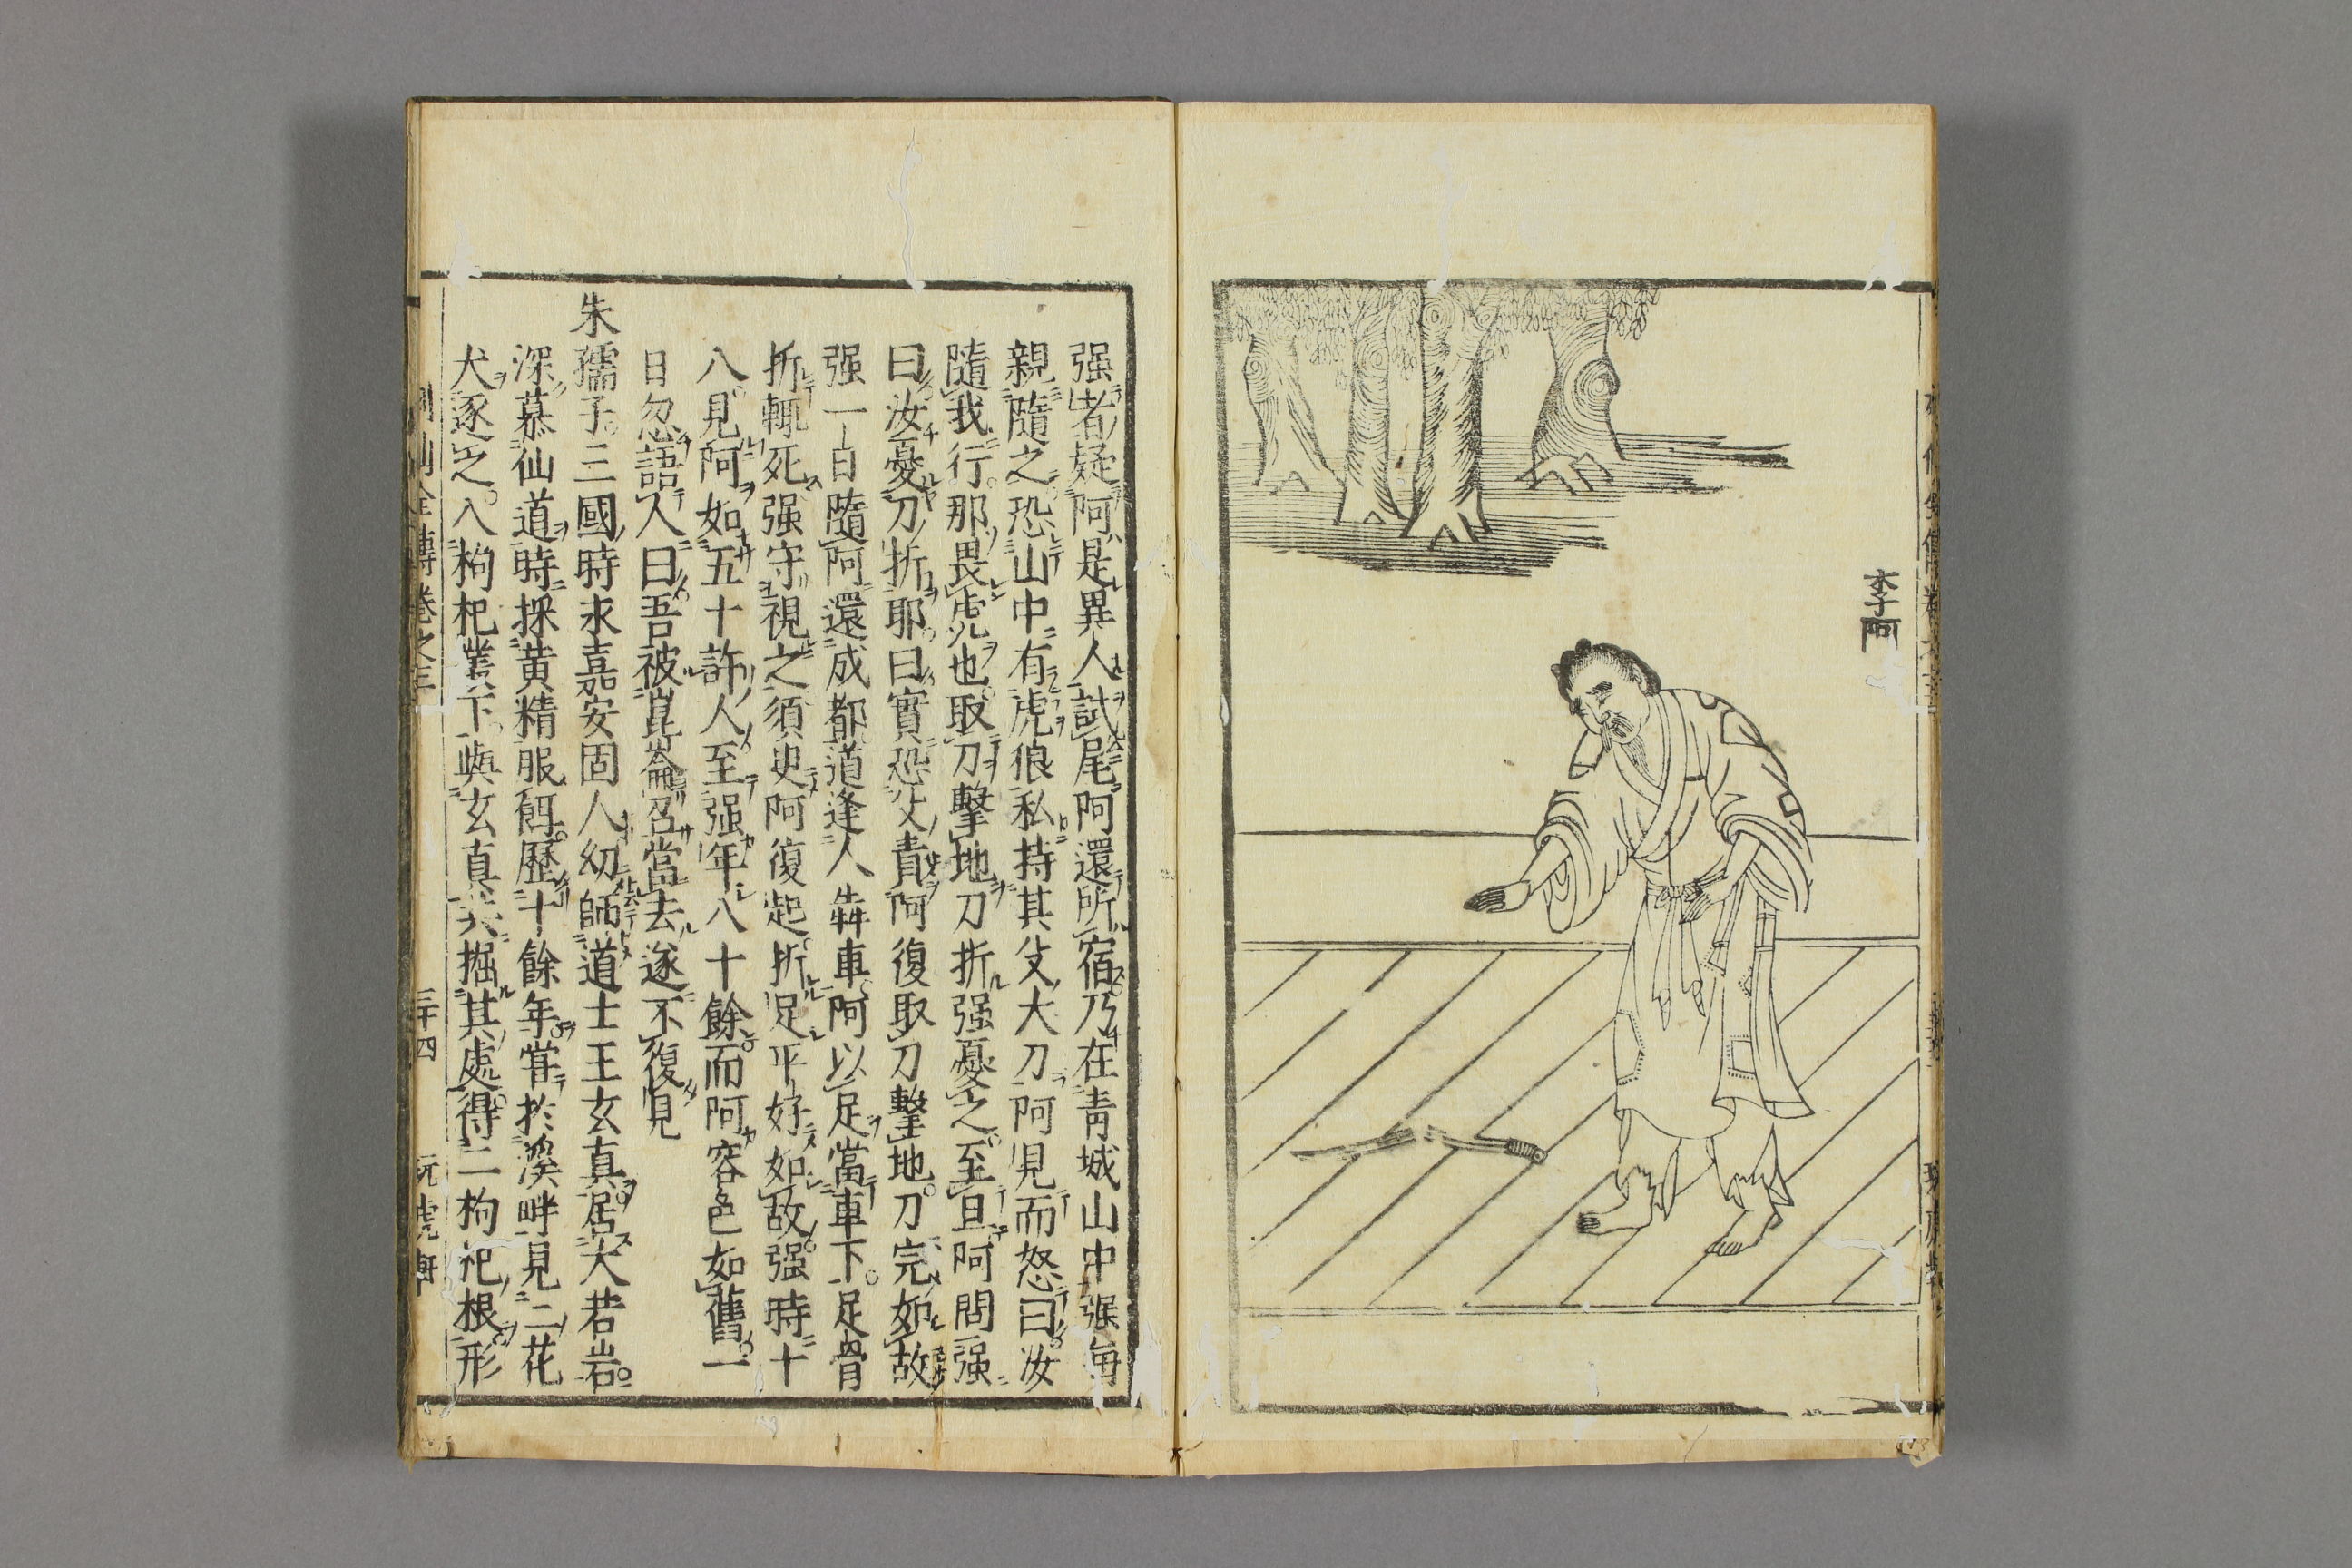 李阿
强者疑阿是異人試尾阿還所宿乃在青城山中强每
親隨之恐山中有虎狼私持其父大刀阿見而怒曰汝
隨我行那畏虎也取刀擊地刀折强憂之至旦阿問强
曰汝憂刀折耶曰實恐父責阿復取刀擊地刀完如故
强一日隨阿還成都道逢人犇車阿以足當車下足骨
折輒死强守視之須臾阿復起折足平好如故强時十
八見阿如五十許人至强年八十餘而阿容色如舊一
日忽語人曰吾被崑崙召當去遂不復見
朱孺子三國時永嘉安固人幼師道士王玄真居大若岩
深慕仙道時採黄精服餌歷十餘年甞於溪畔見二花
犬逐之入枸杞叢下與玄真共掘其處得二枸杞根形
列仙全傳卷之三 三十四 玩虎軒